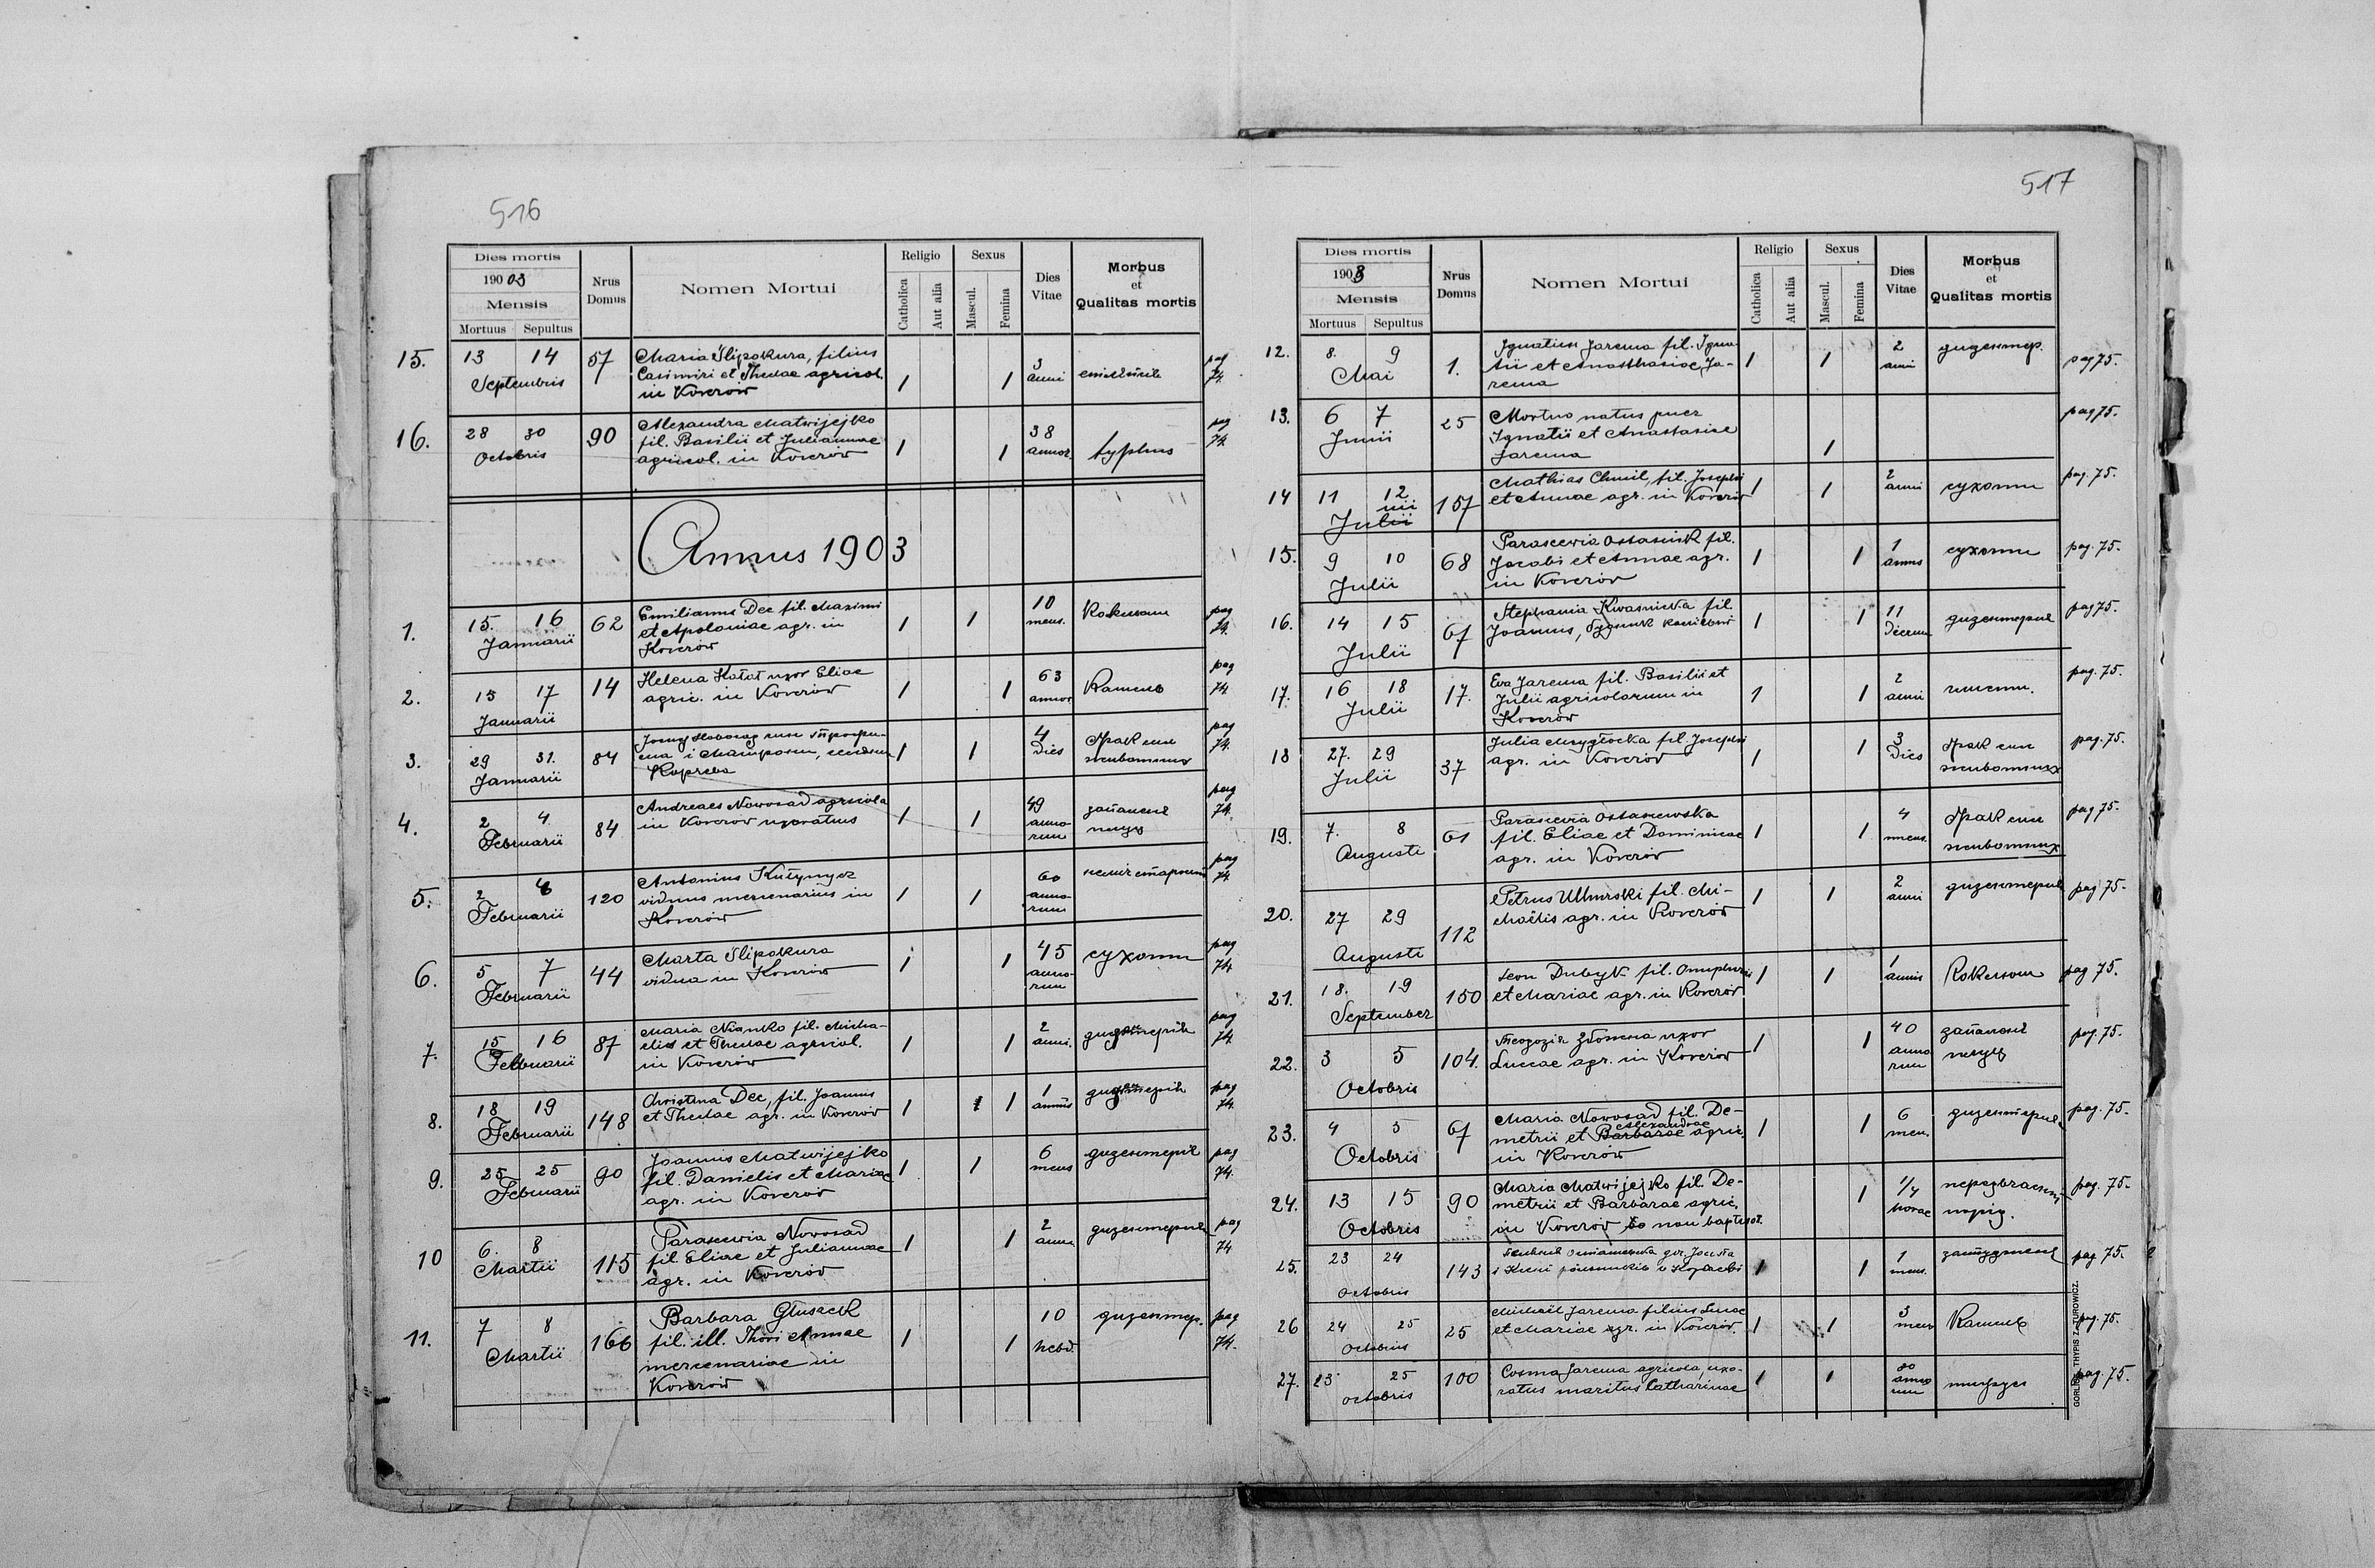 516
Dies mortis
1903
Mensis
Mortuus Sepultus
Nrus Domus
Nomen Mortui
Religio
Catholica
Aut alia
Sexus
Mascul.
Femina
Dies Vitae
Morbus
et
Qualitas mortis
15. 13 14 57 Maria Slipokura, filius 3 pag
Septembris Casimiri et Theclae agricol. 1 1 anni 74.
in Koverów
16. 28 30 90 Alexandra Matwijejko 38 pag
Octobris fil. Basilii et Juliannae 1 1 annor. typhus 74.
agricol. in Koverów
Annus 1903
1. 15. 16 62 Emilianus Dec fil. Maximi 1 1 10 Коклюш pag
Januarii et Apoloniae agr. in mens. 74.
Koverów
2. 15 17 14 Helena Kotot uxor Eliae 1 1 63 Камень pag
Januarii agric. in Koverów annor 74
3. 29 31. 84 1 1 4 Брак сил pag
Januarii Dies животних 74.
4. 2 4 84 Andreaes Nowosad agricola 1 1 49 запаленє pag
Februarii in Koverów uxoratus anno- 74.
rum
5. 2 4 120 Antonius Kutynycz 1 1 60 pag
Februarii viduus mercenarius in anno- 74
Koverów rum
6. 5 7 44 Marta Slipokura 1 1 45 сухоти pag
Februarii vidua in Koverów anno- 74
rum
7. 15 16 87 Maria Nianko fil. Micha- 1 1 2 pag
Februarii elis et Theclae agricol. anni. 74
in Koverów
8. 18 19 148 Christina Dec, fil. Joannis 1 1 1 pag
Februarii et Theclae agr. in Koverów 74.
9. 25 25 90 Joannis Matwijejko 1 1 6 дизентерія pag
Februarii fil. Danielis et Mariae mens 74.
agr. in Koverów
10 6. 8 115 Parascewia Novosad 1 1 2 дизентерия pag
Martii fil. Eliae et Juliannae 74
agr. in Koverów
11. 7 8 166 Barbara Głuszek 1 1 10 дизентер. pag
Martii fil. ill. Thori Annae hebd. 74.
mercenariae in
Koverów
517
Dies mortis
1903
Mensis
Mortuus Sepultus
Nrus Domus
Nomen Mortui
Religio
Catholica
Aut alia
Sexus
Mascul.
Femina
Dies Vitae
Morbus
et
Qualitas mortis
12. 8. 9 1. Ignatius Jarema fil. Igna- 1 1 2 дизентер. pag 75.
Mai tii et Anasthasiae Ja- anni
rema
13. 6 7 25 Mortuo natus puer pag 75.
Junii Ignatii et Anastasiae
Jarema 1
14 11 12 157 Mathias Chmil, fil. Josephi 1 1 2 сухоти pag. 75.
Julii et Annae agr. in Koverów anni
15. 9 10 68 Parascewia Ostasiuk fil. 1 1 1 сухоти pag. 75.
Julii Jacobi et Annae agr. annus
in Koverów
16. 14 15 67 Stephania Kwasnicka fil. 1 1 11 дизентерия pag 75.
Julii Joannis, будник
17. 16 18 17. Eva Jarema fil. Basilii et 1 1 2 pag. 75.
Julii Julii agricolarum in anni
Koverów
18 27. 29 37 Julia Mrygłocka fil. Josephi 1 1 3 Брак сил pag. 75.
Julii agr. in Koverów Dies животних
19. 7. 8 61 Parascevia Ostaszewska 1 1 4 Брак сил pag 75.
Augusti fil. Eliae et Dominicae mens. животних
agr. in Koverów
20. 27 29 112 Petrus Uhnivski fil. Mi- 1 1 2 дизентерия pag 75-
Augusti chaëlis agr. in Koverów anni
21. 18. 19 150 Leon Dubyk fil. Onuphrii 1 1 1 Коклюш pag 75.
September et Mariae agr. in Koverów annus
22. 3 5 104. uxor 1 1 40 запаленє pag. 75.
Octobris Lucae agr. in Koverów anno
rum
23. 4 5 67 Maria Novosad fil. De- 1 1 6 дизентерия pag. 75-
Octobris metrii et Barbarae Alexandrae agric. men.
in Koverów
24. 13 15 90 Maria Matwijejko fil. De- 1 1/4 pag. 75-
Octobris metrii et Barbarae agric. horae
in Koverów non baptisat.
25. 23 24 143 1 1 1 pag. 75.
Octobris mens.
26 24 25 25 Michaël Jarema filius Lucae 1 1 3 Камень pag. 75.
Octobris et Mariae agr. in Koverów. mens
27. 23 25 100 Cosma Jarema agricola, uxo- 1 1 80 pag. 75.
Octobris ratus maritus Catharinae anno
rum